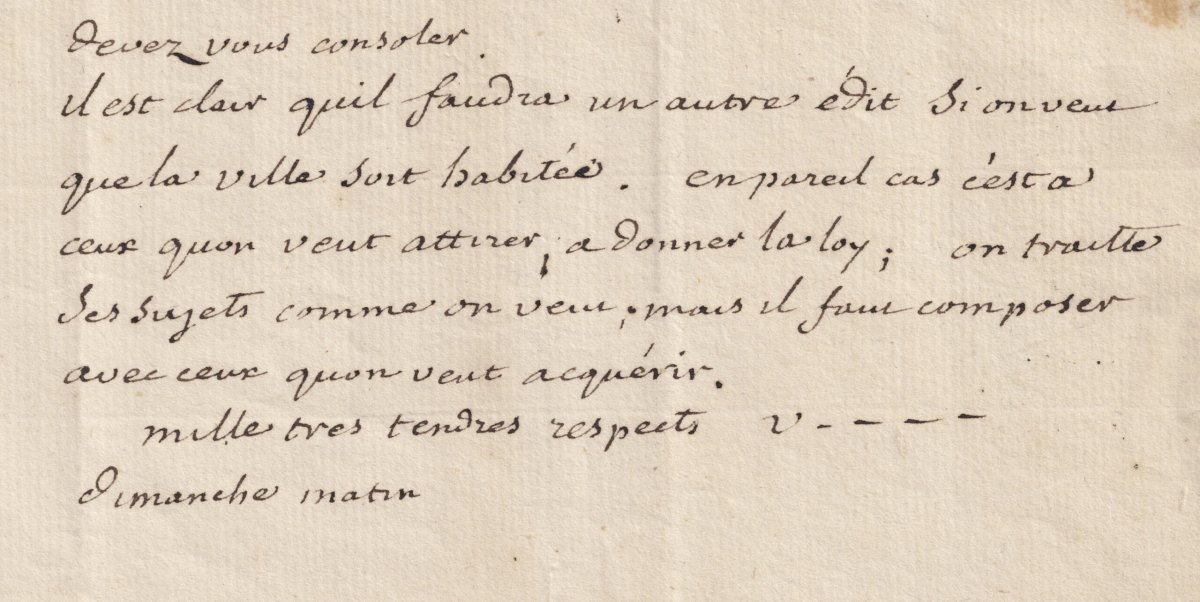 devez vous consoler.
il est clair quil faudra un autre édit si on veut
que la ville soit habitée. en pareil cas c'est a
ceux quon veut attirer, a donner la loy; on traitte
ses sujets comme on veut; mais il faut composer
avec ceux quon veut acquérir.
mille tres tendres respects V - - - -
dimanche matin